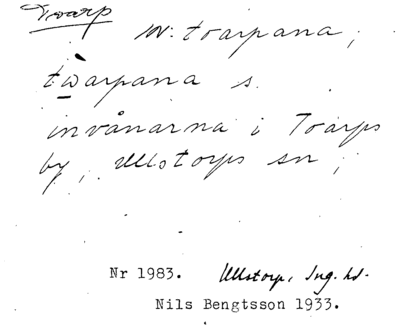 Toarp
sv: toarpana,
twarpana s.
invånarna i Toarps
by, Ullstorps sn,
Nr 1983. Ullstorp, Ing. hd.
Nils Bengtsson 1933.